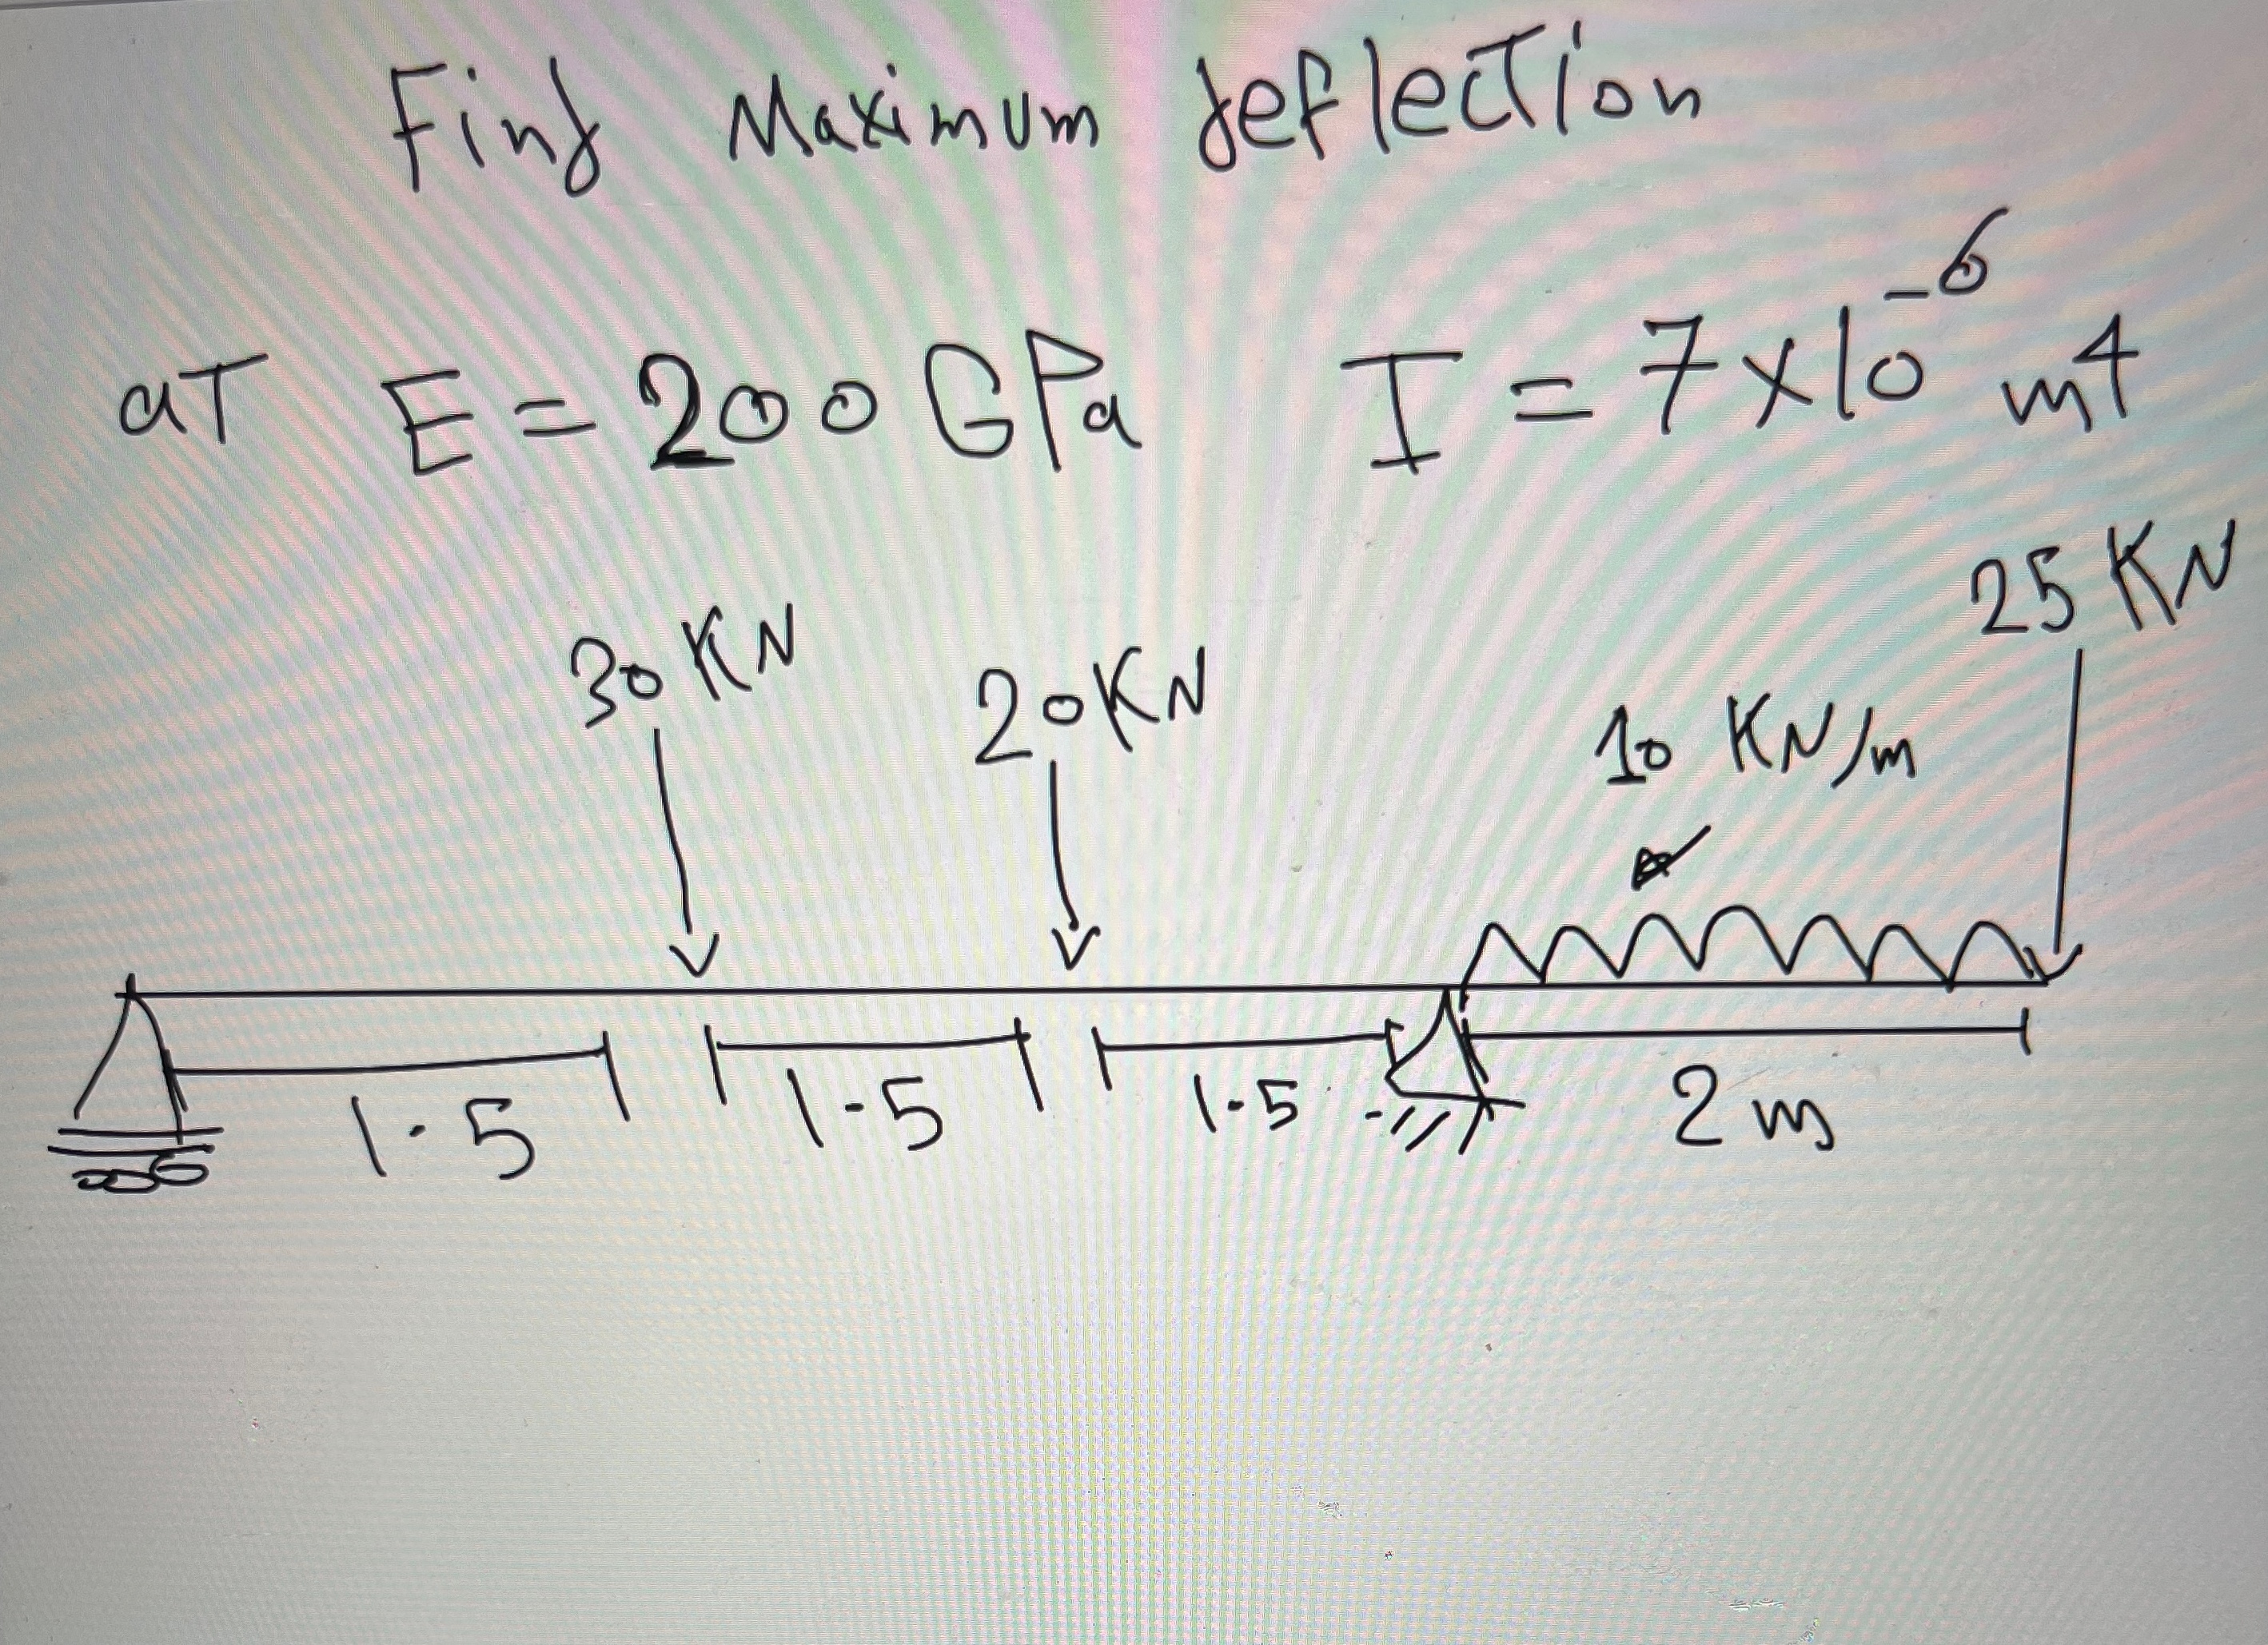 Find Maximum deflection
at E = 200 GPa I = 7 x 10^-6 m4
25 KN
30 KN
20 KN
10 KN/m
1.5 1.5 1.5 2 m